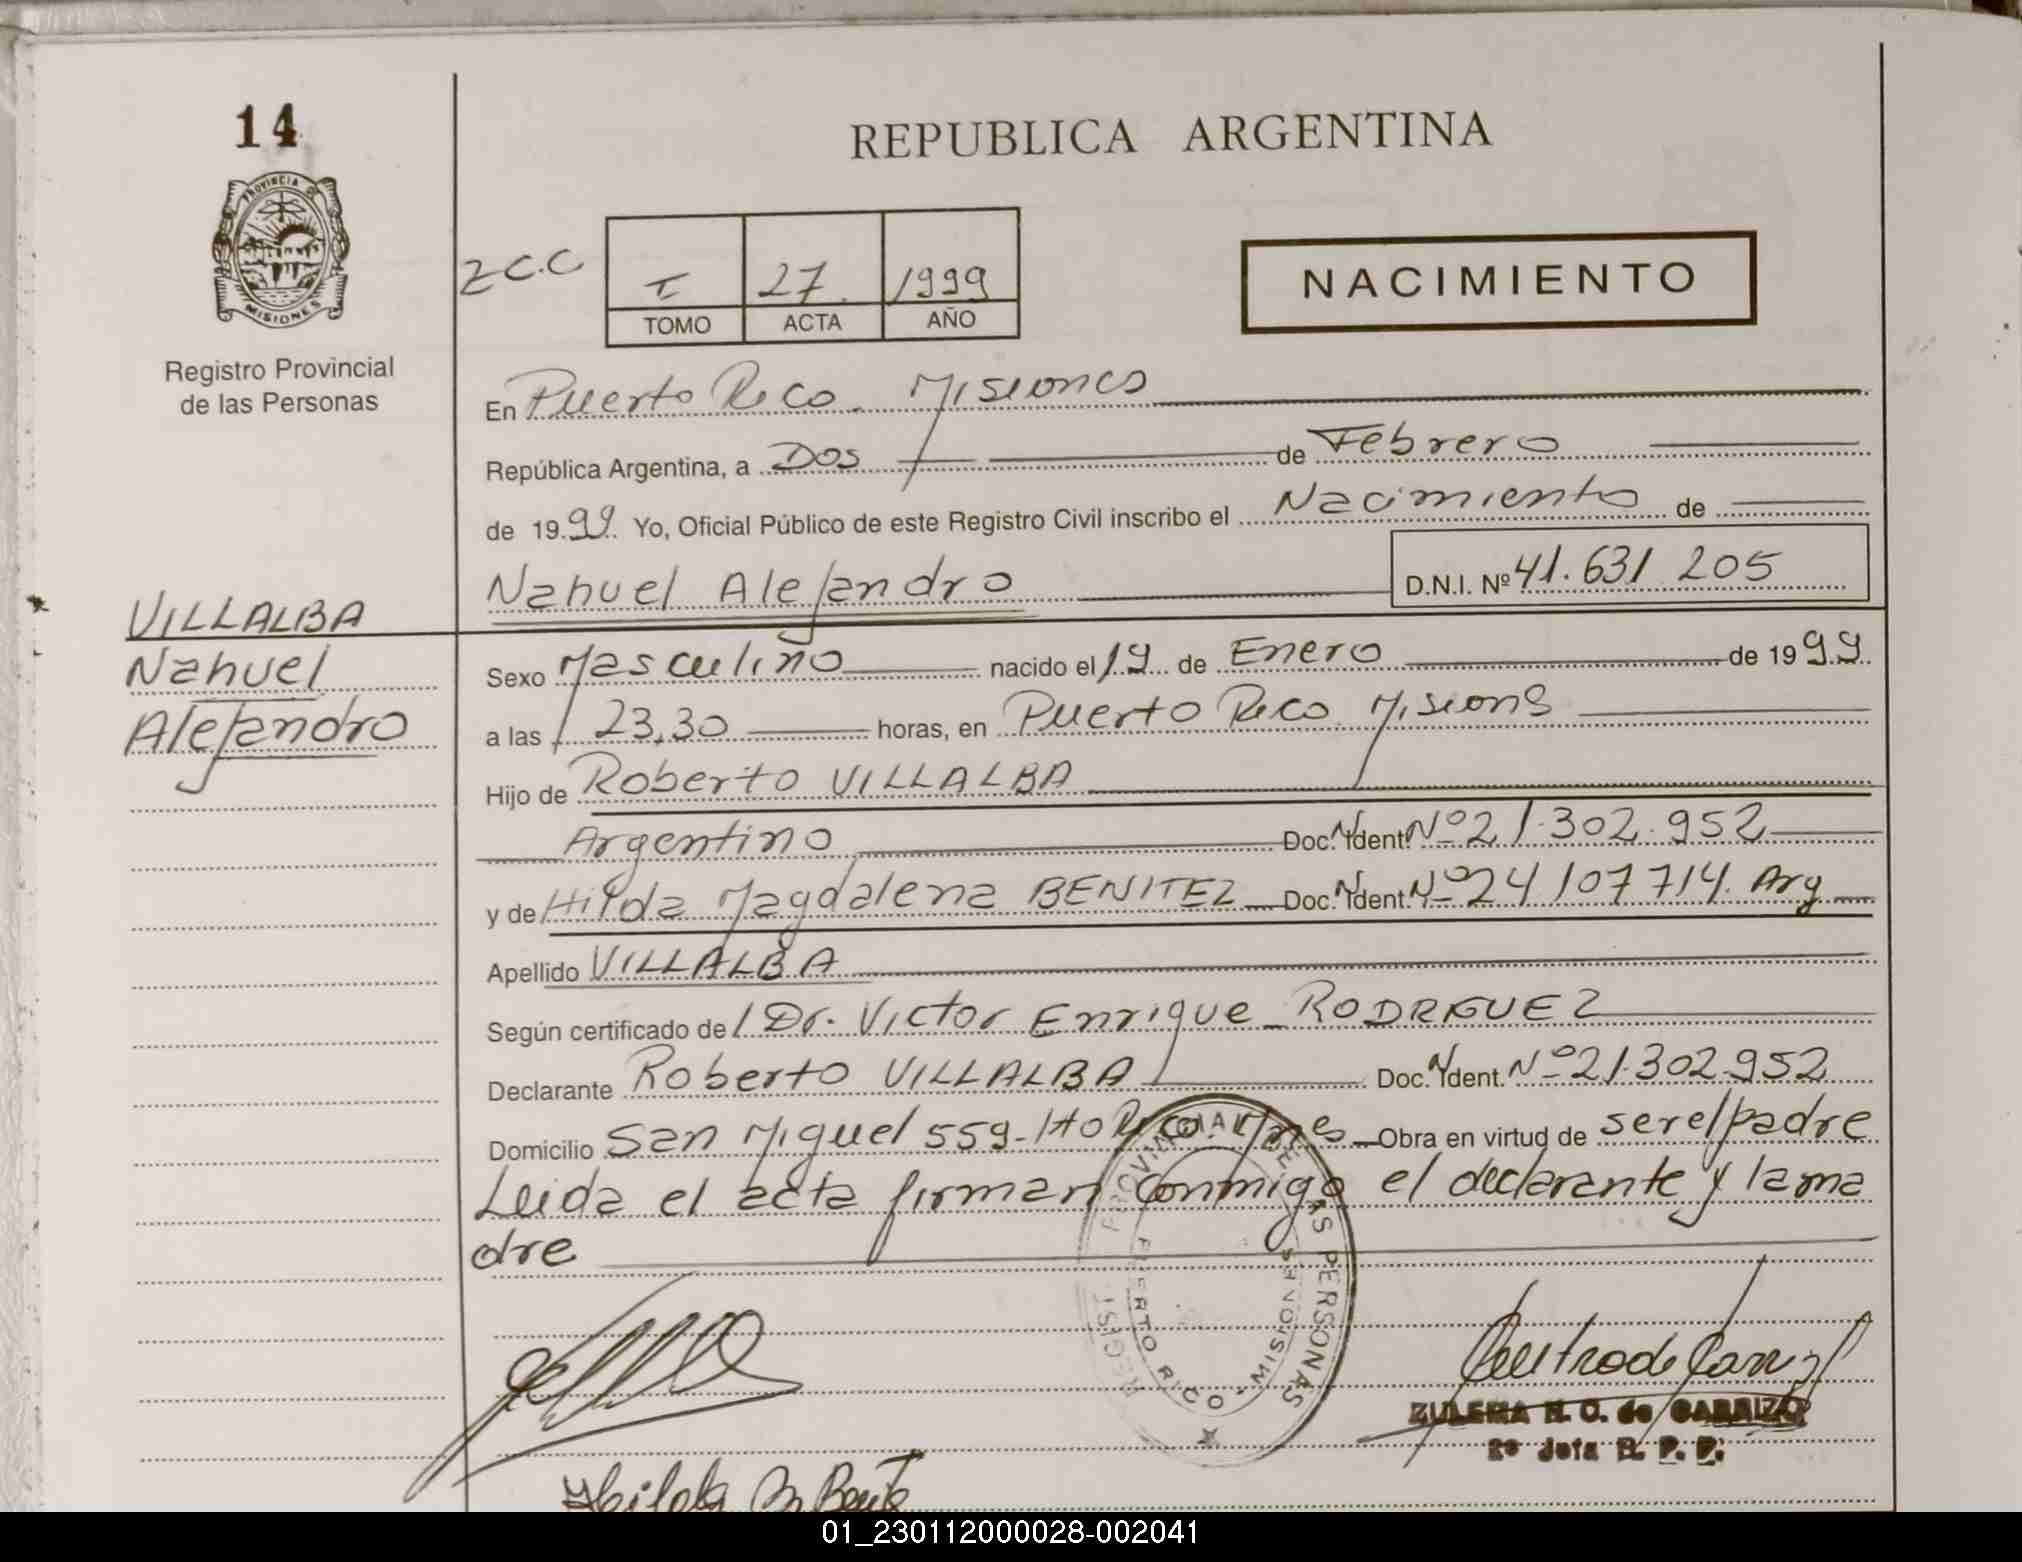 14
REPUBLICA ARGENTINA
PROVINCIA DE
MISIONES
Registro Provincial
de las Personas
2 C.C
I 27. 1999
TOMO ACTA AÑO
NACIMIENTO
En Puerto Rico. Misiones
República Argentina, a Dos de Febrero
de 19.99. Yo, Oficial Público de este Registro Civil inscribo el Nacimiento de
Nahuel Alejandro D.N.I. Nº 41.631 205
VILLALBA
Nahuel
Alejandro
Sexo Masculino nacido el 19 de Enero de 1999.
a las 23,30 horas, en Puerto Rico Misions
Hijo de Roberto VILLALBA
Argentino Doc. Ident. Nº 21.302.952
y de Hilda Magdalena BENITEZ Doc. Ident. Nº 24 107 714. Arg
Apellido VILLALBA
Según certificado de Dr. Victor Enrique RODRIGUEZ
Declarante Roberto VILLALBA Doc. Ident. Nº 21.302.952
Domicilio San Miguel 559- Pto Rico. Mnes Obra en virtud de ser el padre
Leida el acta firman conmigo el declarante y la ma
dre
REGIST. PROVINCIAL DE LAS PERSONAS
PUERTO RICO - MISIONES
ZULEMA N. O. de CARRIZO
2º Jefa R. P. P.
01_230112000028-002041